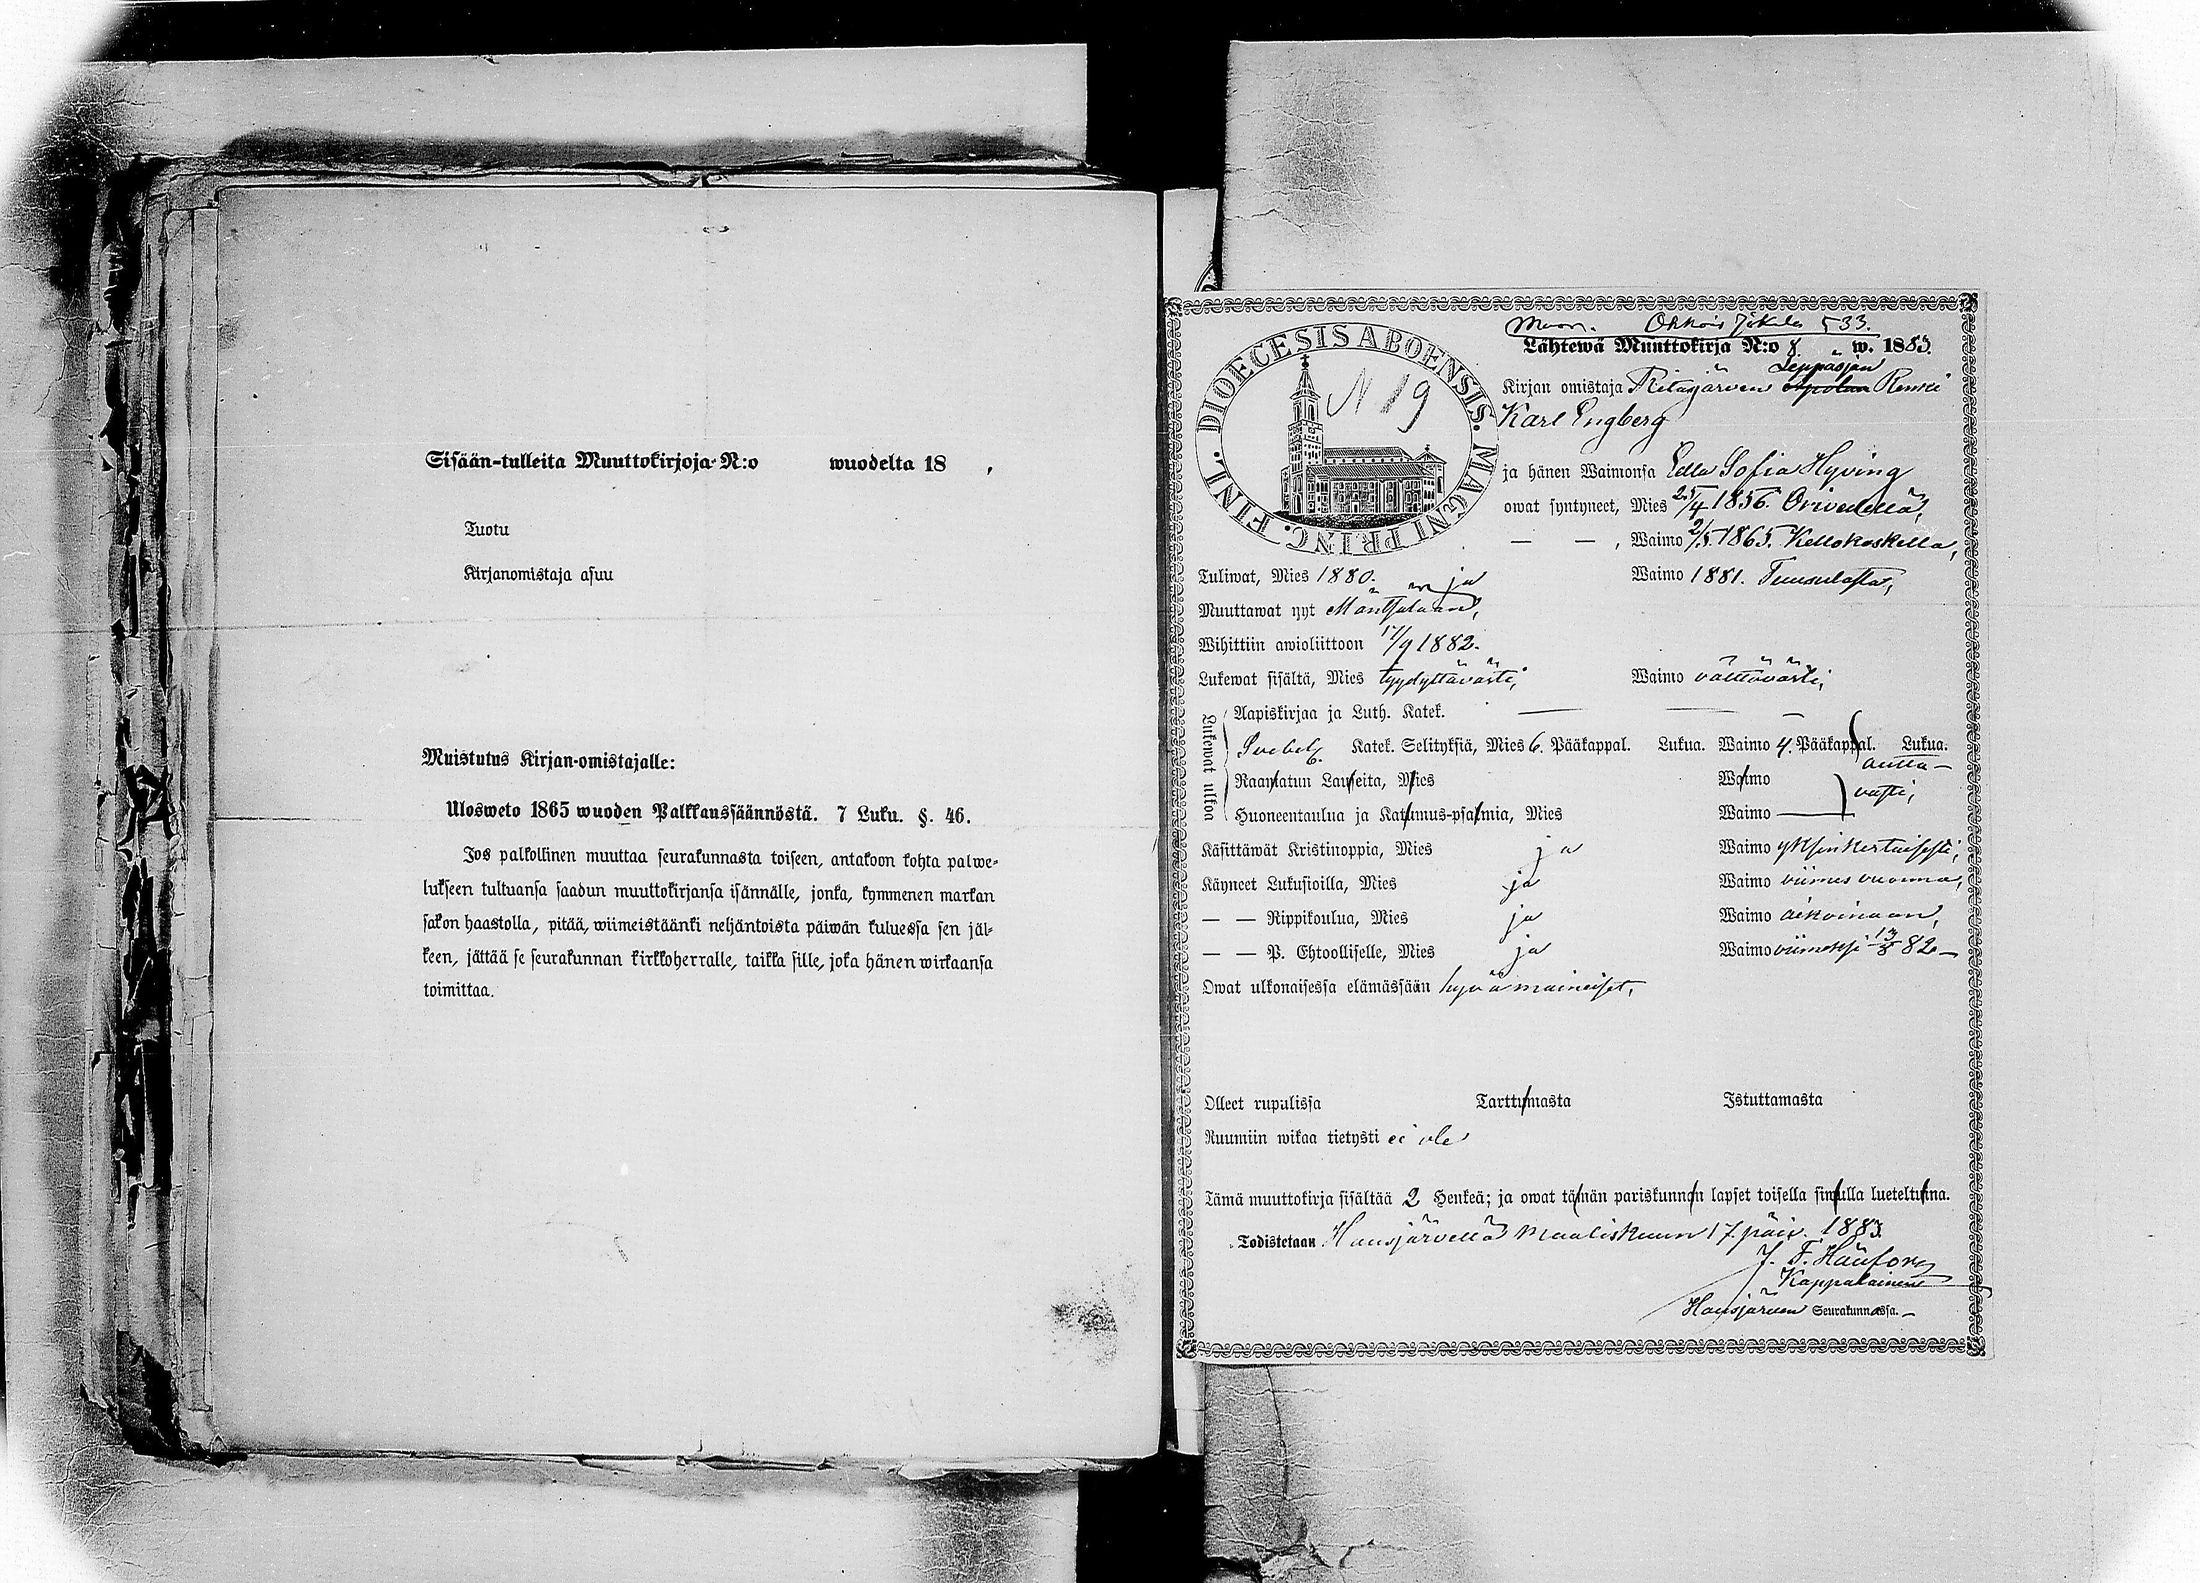 Sisään-tulleita Muuttokirjoja N:o wuodelta 18 .
Tuotu
Kirjanomistaja asuu
Muistutus Kirjan-omistajalle:
Ulosweto 1865 wuoden Palkkaussäännöstä. 7 Luku. §. 46.
Jos palkollinen muuttaa seurakunnasta toiseen, antakoon kohta palwe-
lukseen tultuansa saadun muuttokirjansa isännälle, jonka, kymmenen markan
sakon haastolla, pitää, wiimeistäänki neljäntoista päiwän kuluessa sen jäl-
keen, jättää se seurakunnan kirkkoherralle, taikka sille, joka hänen wirkaansa
toimittaa.
DIOECESIS ABOENSIS. MAGNI PRINC. FINL.
N 19
Ohkois Jokela 533.
Lähtewä Muuttokirja N:o 8. w. 1883.
Leppäojan
Kirjan omistaja Renki
Karl Engberg
ja hänen Waimonsa Edla Sofia Hyving
owat syntyneet, Mies 25/4 1856. Orivedellä,
— — , Waimo 2/5 1865. Kellokoskella,
Tuliwat, Mies 1880. Waimo 1881. Tuusulasta,
Muuttawat nyt Mäntsälään,
Wihittiin awioliittoon 17/9 1882.
Lukewat sisältä, Mies tyydyttävästi, Waimo välttävästi,
Lukewat ulkoa
Aapiskirjaa ja Luth. Katek. — — —
Svebel. Katek. Selityksiä, Mies 6. Pääkappal. Lukua. Waimo 4. Pääkappal. Lukua.
autta-
vasti,
Raamatun Lauseita, Mies Waimo
Huoneentaulua ja Katumus-psalmia, Mies Waimo —
Käsittäwät Kristinoppia, Mies ja Waimo yksinkertaisesti,
Käyneet Lukusioilla, Mies ja Waimo viimes vuonna,
— — Rippikoulua, Mies ja Waimo aikoinaan,
— — P. Ehtoolliselle, Mies ja Waimo viimeksi 13/8 82 —
Owat ulkonaisessa elämässään hyvämaineiset,
Olleet rupulissa Tarttumasta Istuttamasta
Ruumiin wikaa tietysti ei ole
Tämä muuttokirja sisältää 2 Henkeä; ja owat tämän pariskunnan lapset toisella siwulla lueteltuina.
Todistetaan Hausjärvellä Maaliskuun 17. päiv. 1883.
J. F.
Kappalainen
Hausjärven Seurakunnassa. —